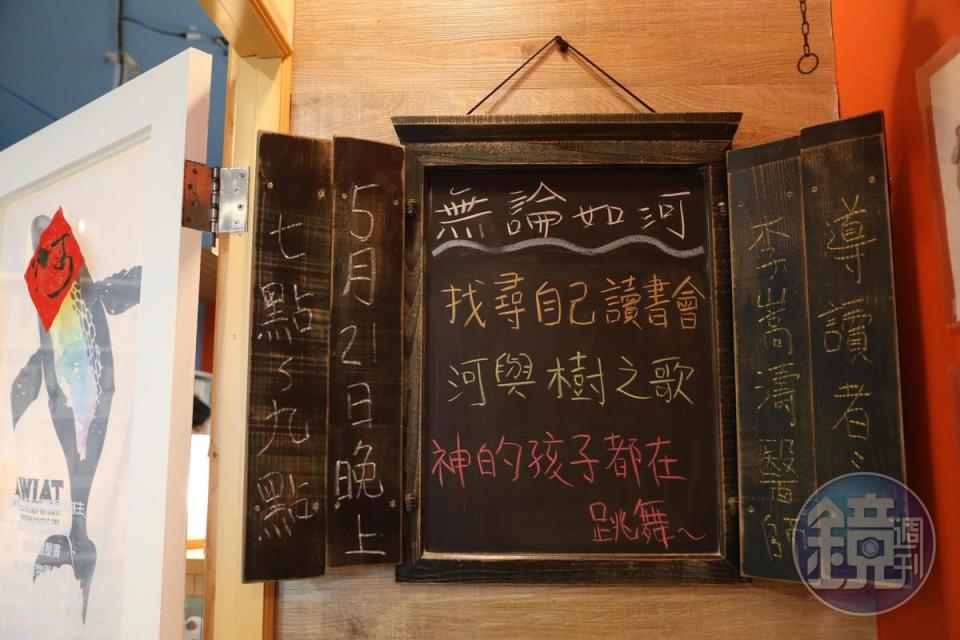 無論如河
找尋自己讀書會
河與樹之歌
神的孩子都在
跳舞~
5月21日晚上
七點~九點
導讀者:
李嵩濤醫師
河
鏡週刊